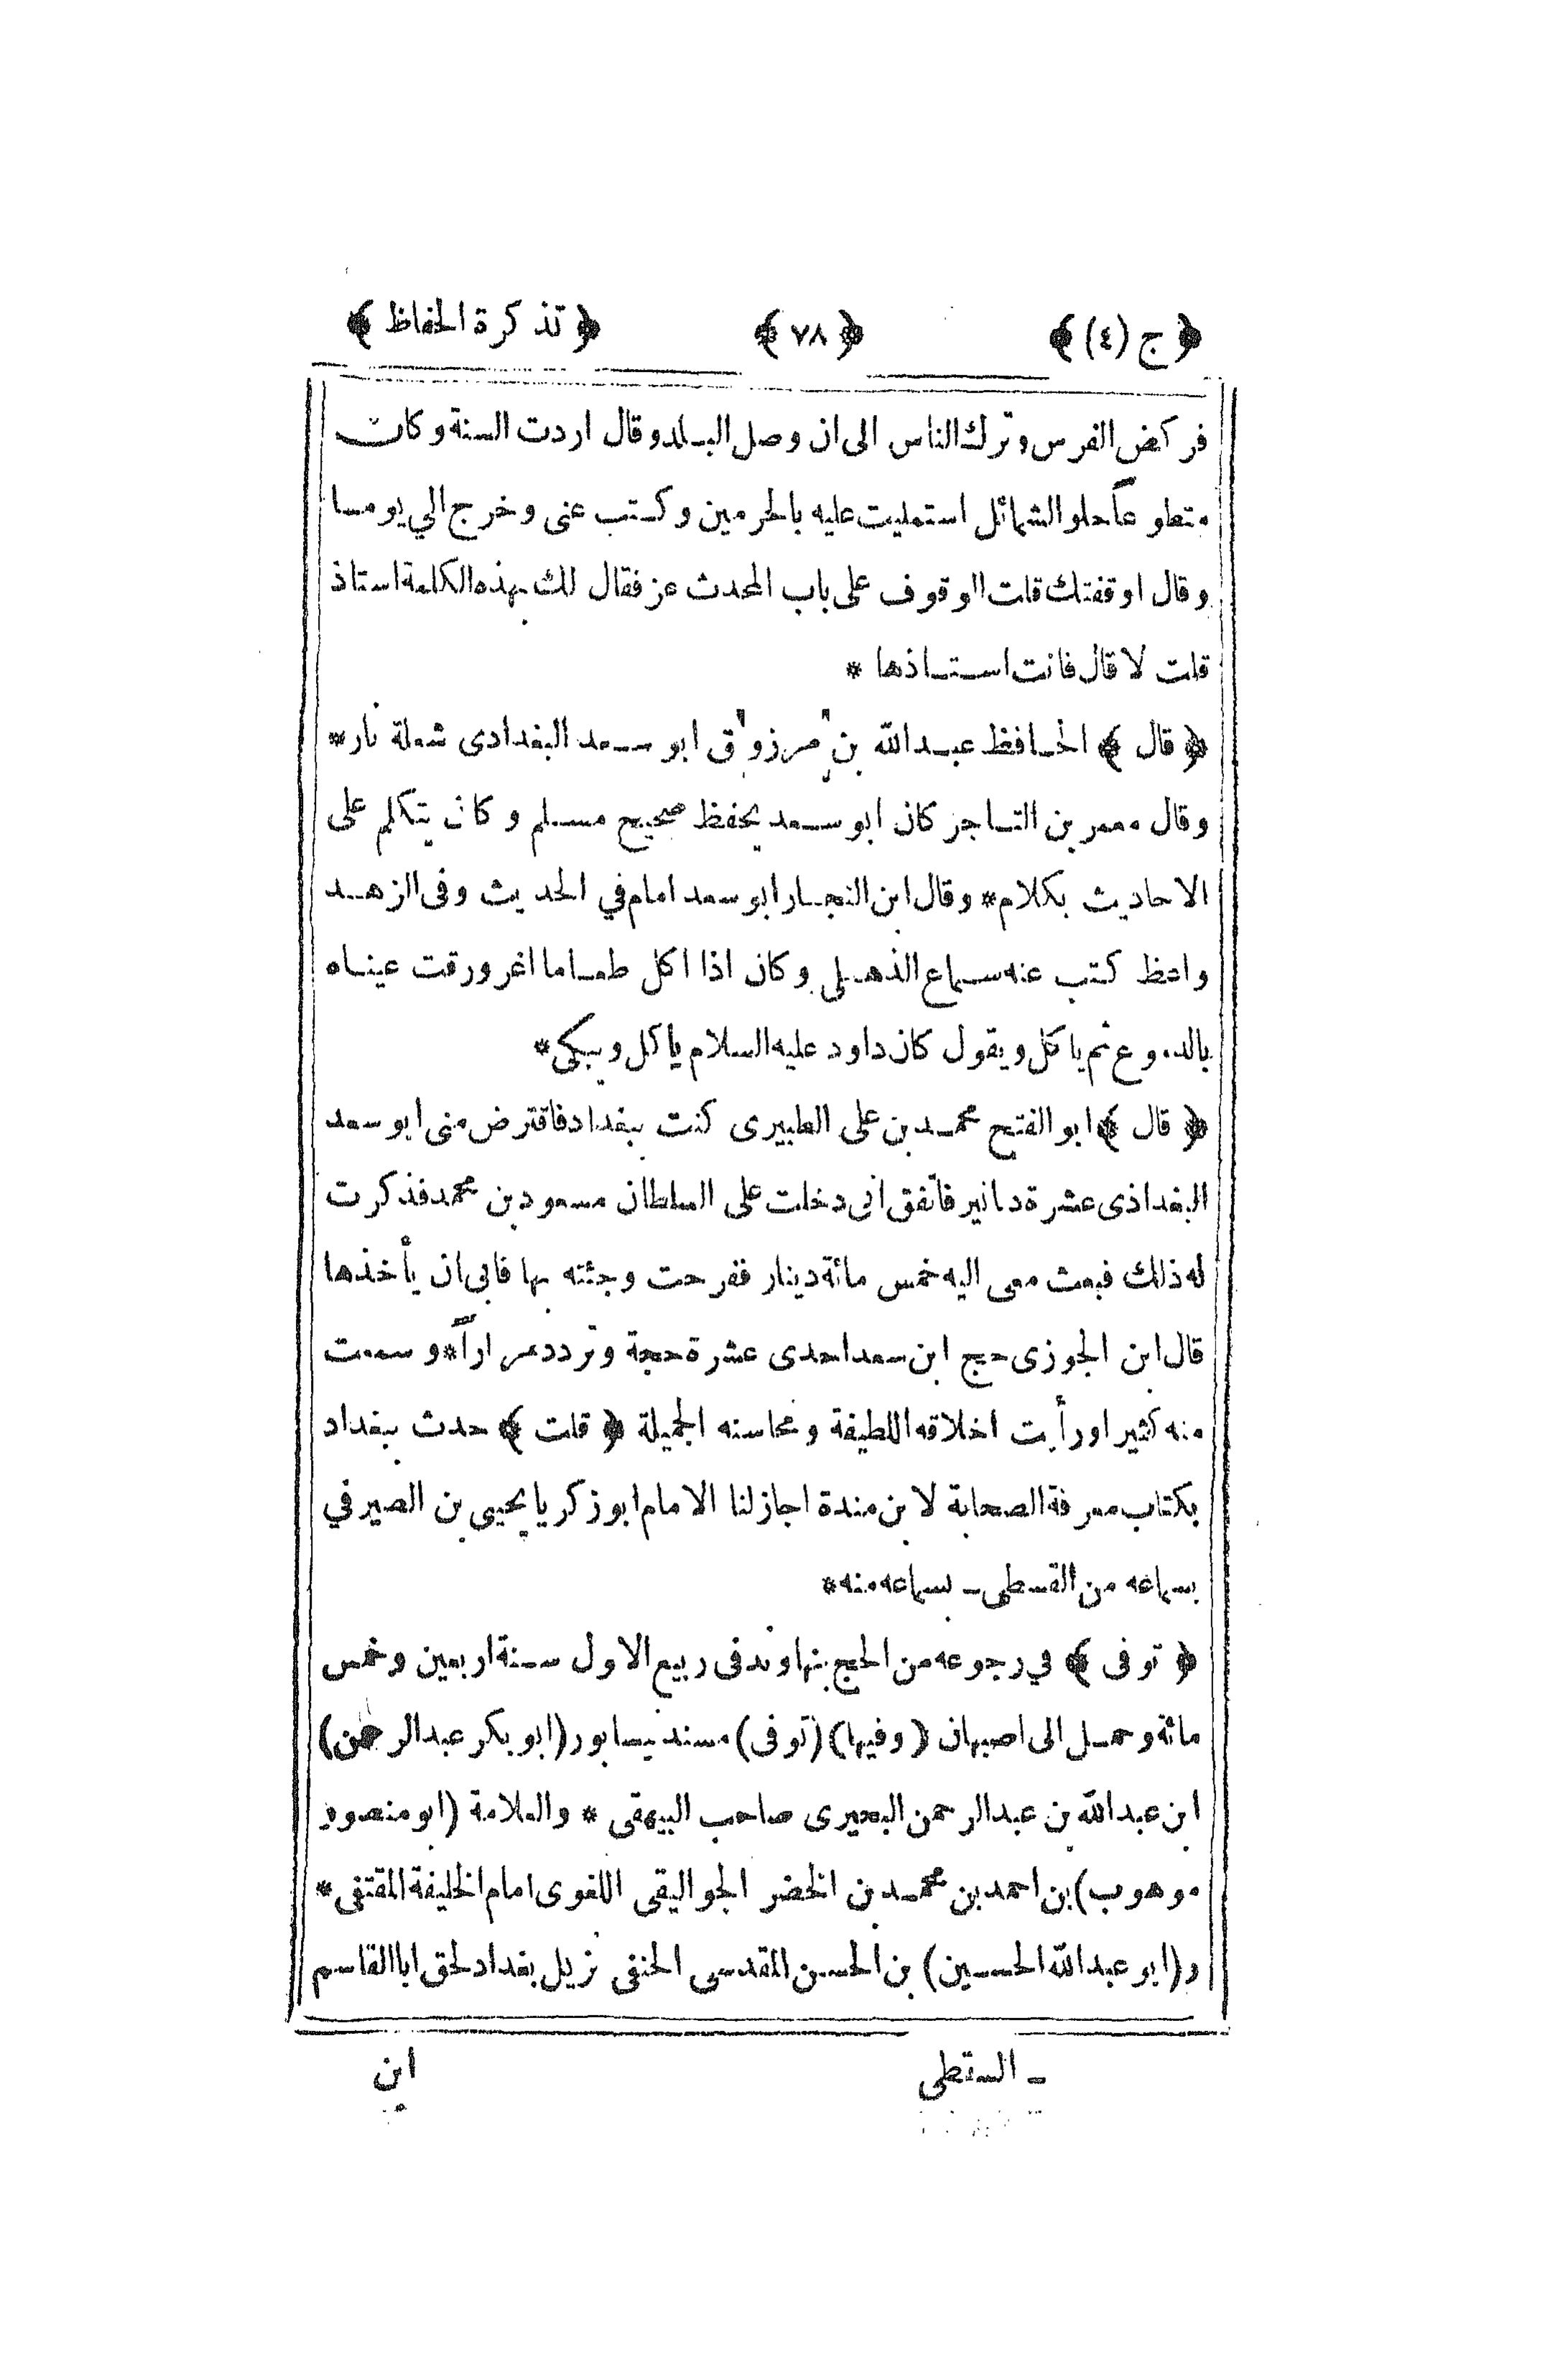 ﴿ ج (٤) ﴾ ﴿ ٧٨ ﴾ ﴿ تذكرة الحفاظ ﴾
فركض الفرس وترك الناس الى ان وصل البلد وقال اردت السنة وكان
متطوعاً حلو الشمائل استمليت عليه بالحرمين وكتب عنى وخرج الي يوما
وقال اوقفتك قلت الوقوف على باب المحدث عز فقال لك بهذه الكلمة استاذ
قلت لا قال فانت استاذها *
﴿ قال ﴾ الحافظ عبد الله بن مرزوق ابو سعد البغدادى شعلة نار *
وقال معمر بن التاجر كان ابو سعد يحفظ صحيح مسلم وكان يتكلم على
الاحاديث بكلام * وقال ابن النجار ابو سعد امام في الحديث وفى الزهد
واعظ كتب عنه سماع الذهلى وكان اذا اكل طعاما اغرورقت عيناه
بالدموع ثم ياكل ويقول كان داود عليه السلام ياكل ويبكى *
﴿ قال ﴾ ابو الفتح محمد بن على الطبيرى كنت ببغداد فاقترض منى ابو سعد
البغداذى عشرة دنانير فاتفق انى دخلت على السلطان مسعود بن محمد فذكرت
له ذلك فبعث معى اليه خمس مائة دينار ففرحت وجئته بها فابى ان يأخذها
قال ابن الجوزى حج ابن سعد احدى عشرة حجة وتردد مراراً * وسمعت
منه كثيرا ورأيت اخلاقه اللطيفة ومحاسنه الجميلة ﴿ قلت ﴾ حدث ببغداد
بكتاب معرفة الصحابة لابن مندة اجاز لنا الامام ابو زكريا يحيى بن الصيرفي
بسماعه من القسطى ـ بسماعه منه *
﴿ توفى ﴾ في رجوعه من الحج بنهاوند فى ربيع الاول سنة اربعين وخمس
مائة وحمل الى اصبهان ( وفيها ) ( توفى ) مسند نيسابور ( ابو بكر عبد الرحمن )
ابن عبد الله بن عبد الرحمن البحيرى صاحب البيهقى * والعلامة ( ابو منصور
موهوب ) بن احمد بن محمد بن الخضر الجواليقى اللغوى امام الخليفة المقتفى *
و ( ابو عبد الله الحسين ) بن الحسن المقدسى الحنفى نزيل بغداد لحق ابا القاسم
ـ السقطى
ابن